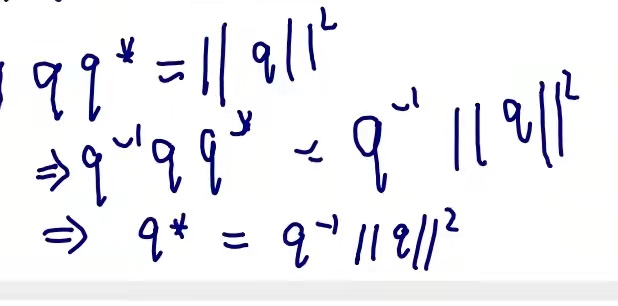 qq* = ||q||²
⇒ q⁻¹qq* = q⁻¹||q||²
⇒ q* = q⁻¹||q||²